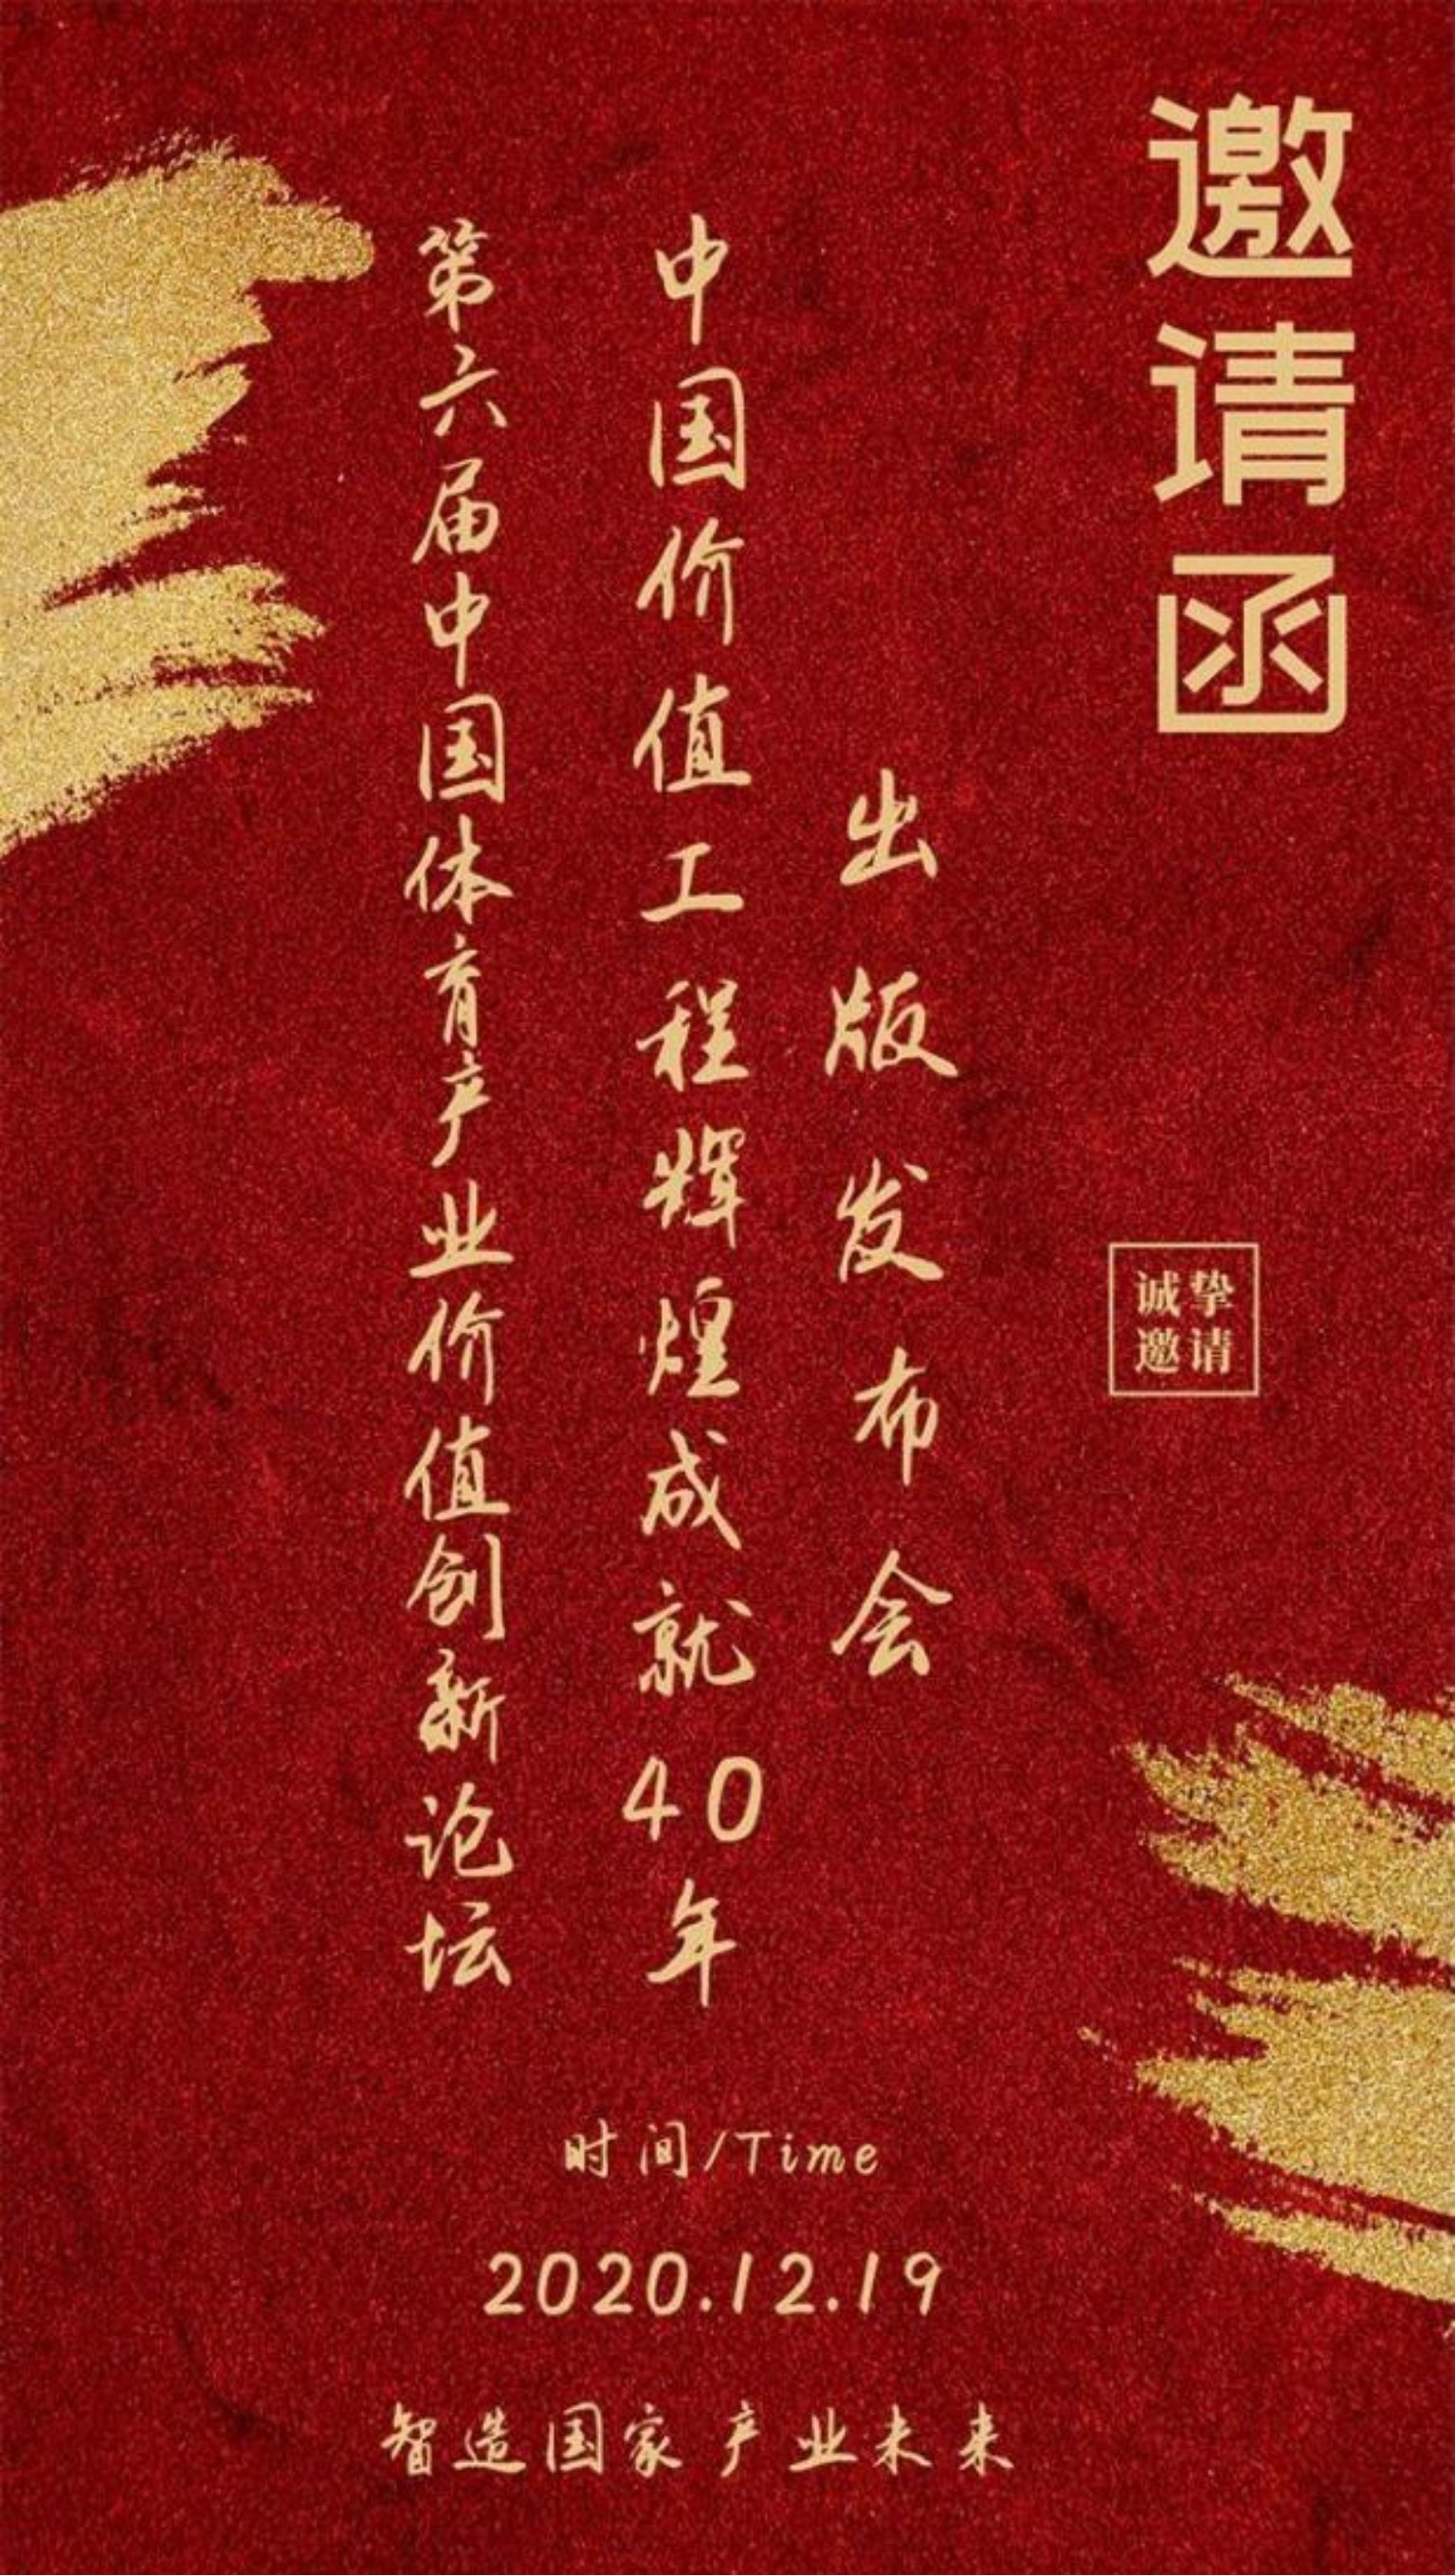 邀请函
诚挚
邀请
出版发布会
中国价值工程辉煌成就40年
第六届中国体育产业价值创新论坛
时间/Time
2020.12.19
智造国家产业未来